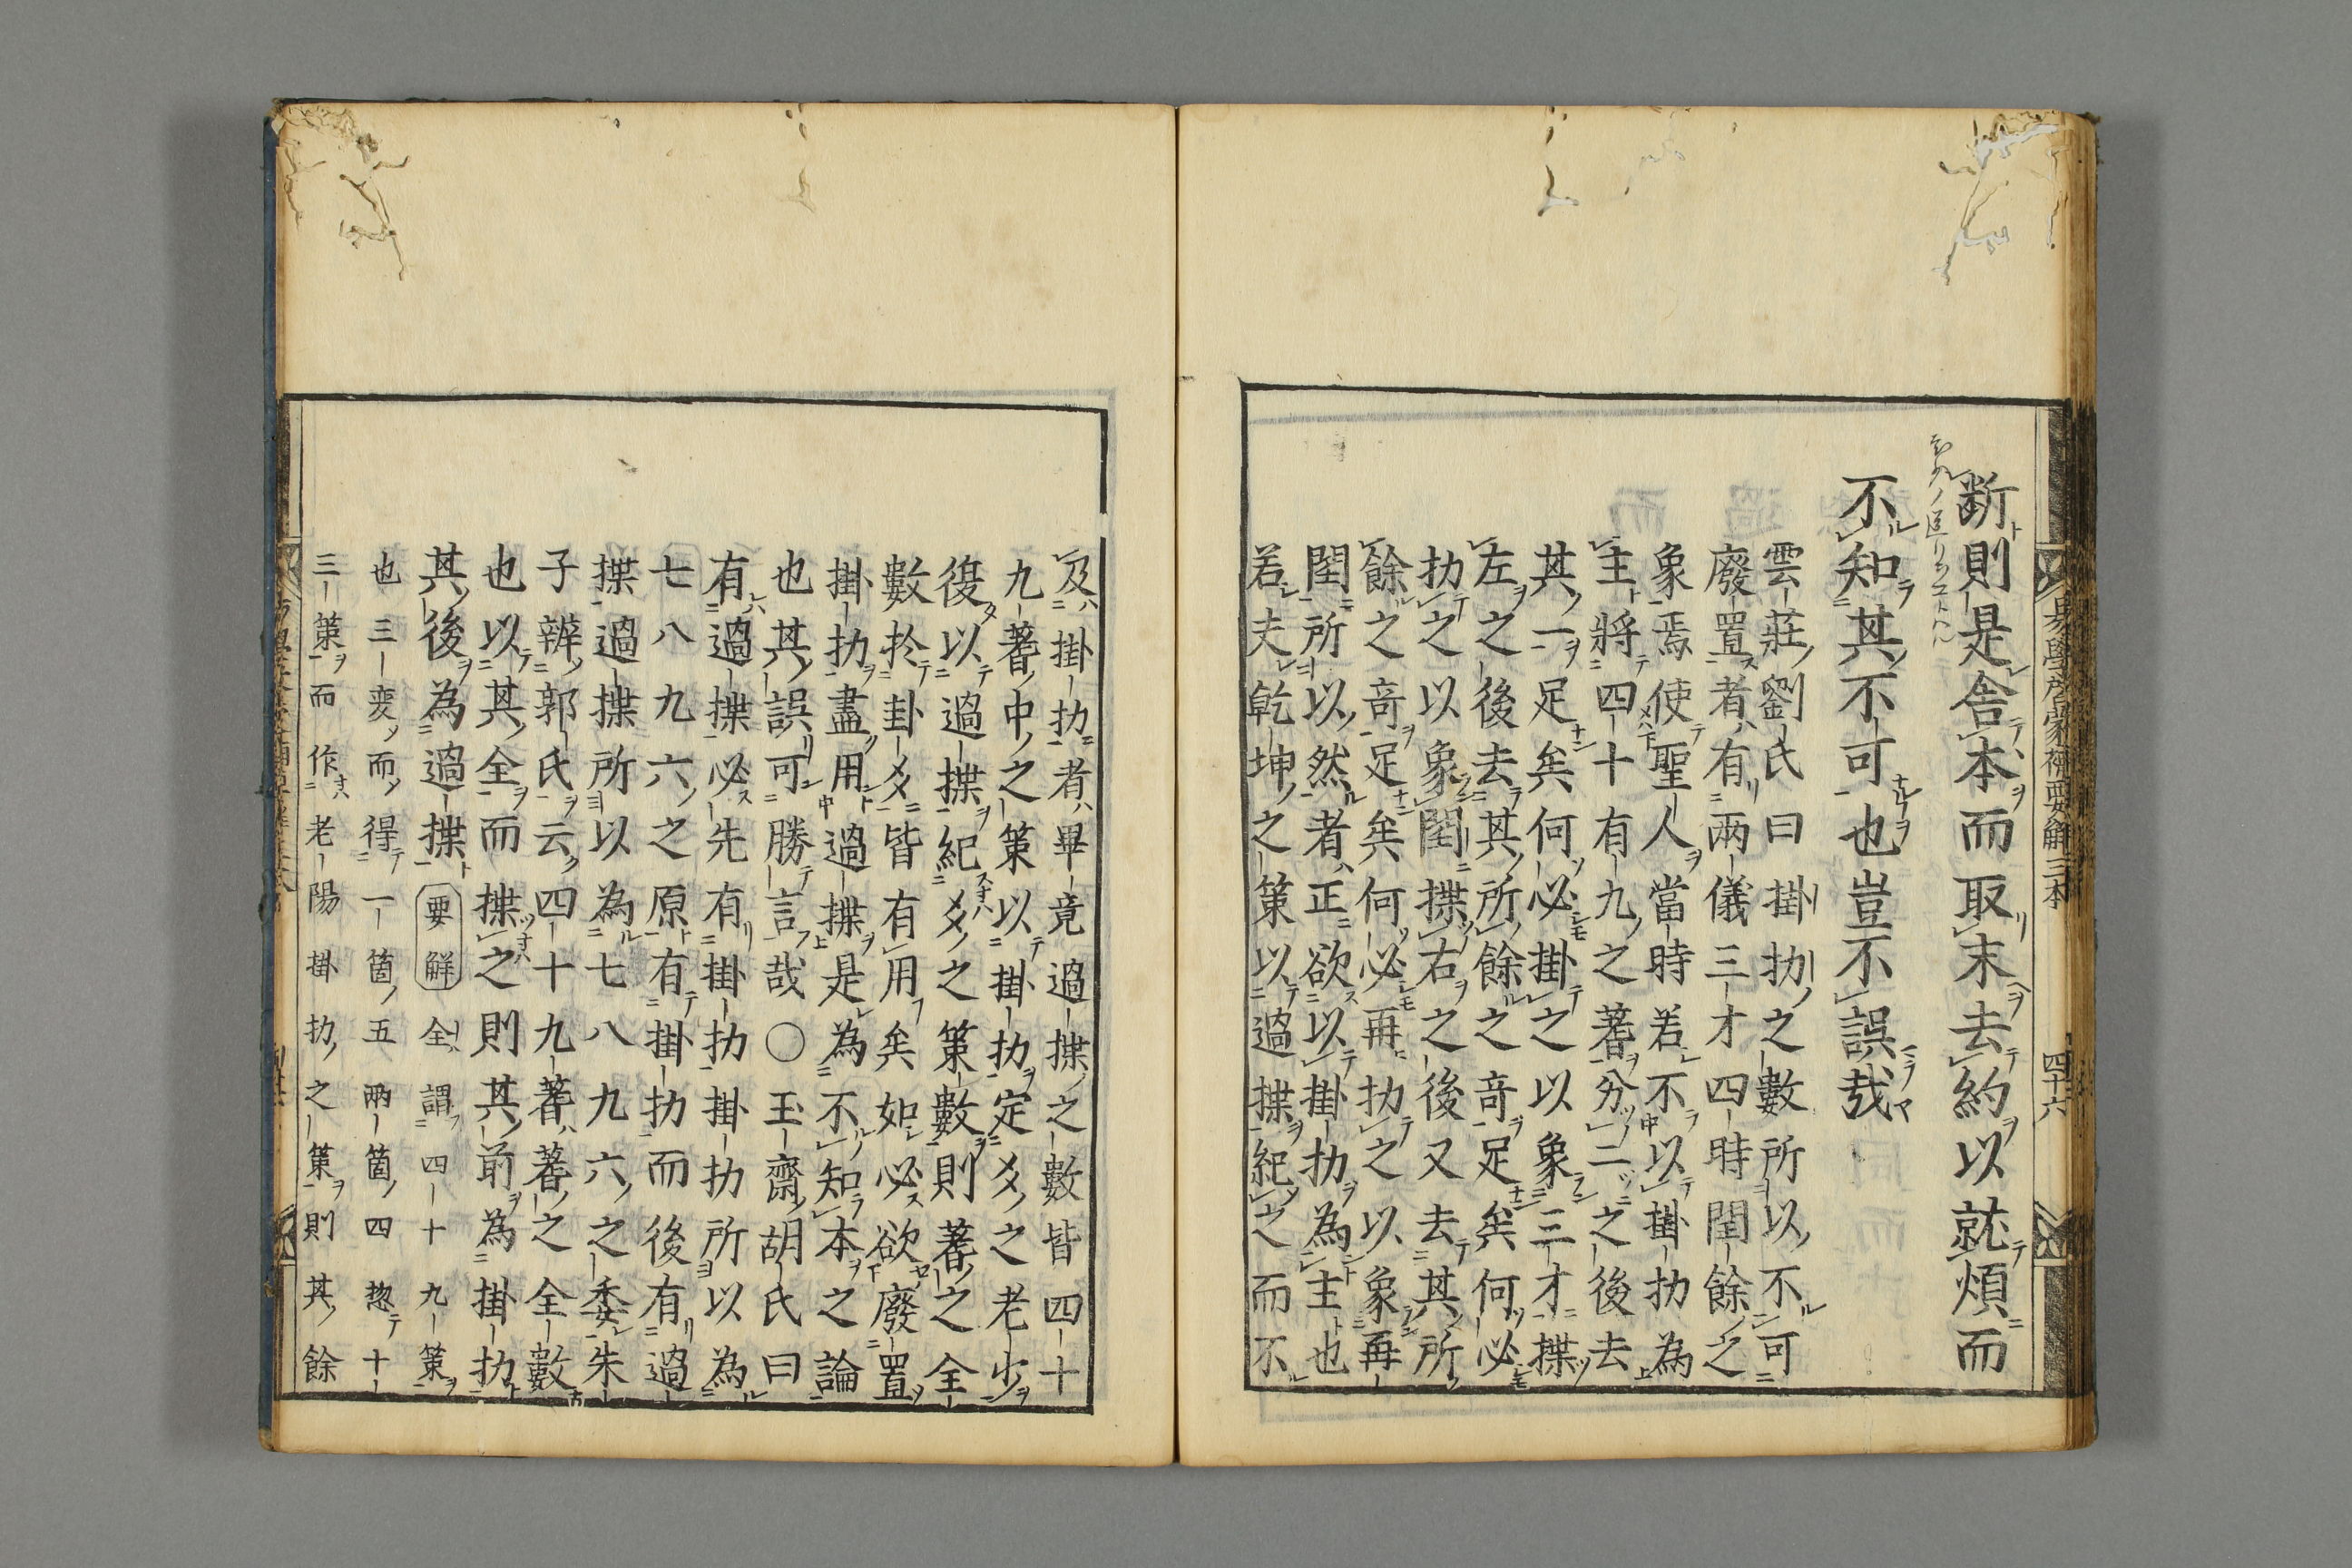 断則是舎本而取末去約以就煩而
不知其不可也豈不誤哉
雲莊劉氏曰掛扐之數所以不可
廢置者有兩儀三才四時閏餘之
象焉使聖人當時若不以掛扐為
主將四十有九之蓍分二之後去
其一足矣何必掛之以象三才揲
左之後去其所餘之竒足矣何必
扐之以象閏揲右之後又去其所
餘之竒足矣何必再扐之以象再
閏所以然者正欲以掛扐為主也
若夫乾坤之策以過揲紀之而不
及掛扐者畢竟過揲之數皆四十
九蓍中之策以掛扐定爻之老少
復以過揲紀爻之策數則蓍之全
數於卦爻皆有用矣如必欲廢置
掛扐盡用過揲是為不知本之論
也其誤可勝言哉〇玉齋胡氏曰
有過揲必先有掛扐掛扐所以為
七八九六之原有掛扐而後有過
揲過揲所以為七八九六之委朱
子辨郭氏云四十九蓍蓍之全數
也以其全而揲之則其前為掛扐
其後為過揲 要解 全謂四十九策
也三変而得一箇五兩箇四惣十
三策而作老陽掛扐之策則其餘
易學啓蒙補要解三本 四十六